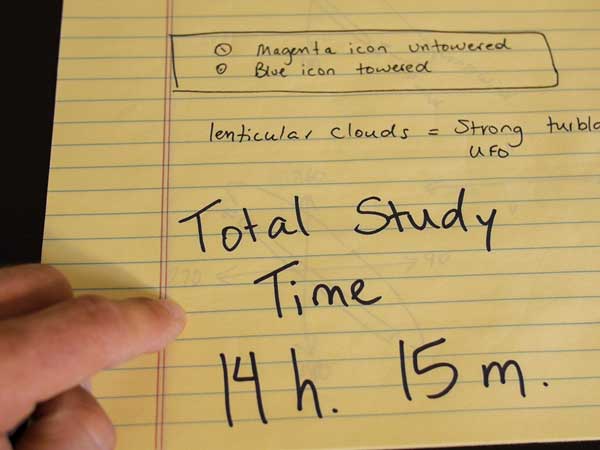 Magenta icon untowered
Blue icon towered
lenticular clouds = Strong
UFO
Total Study
Time
14 h. 15 m.